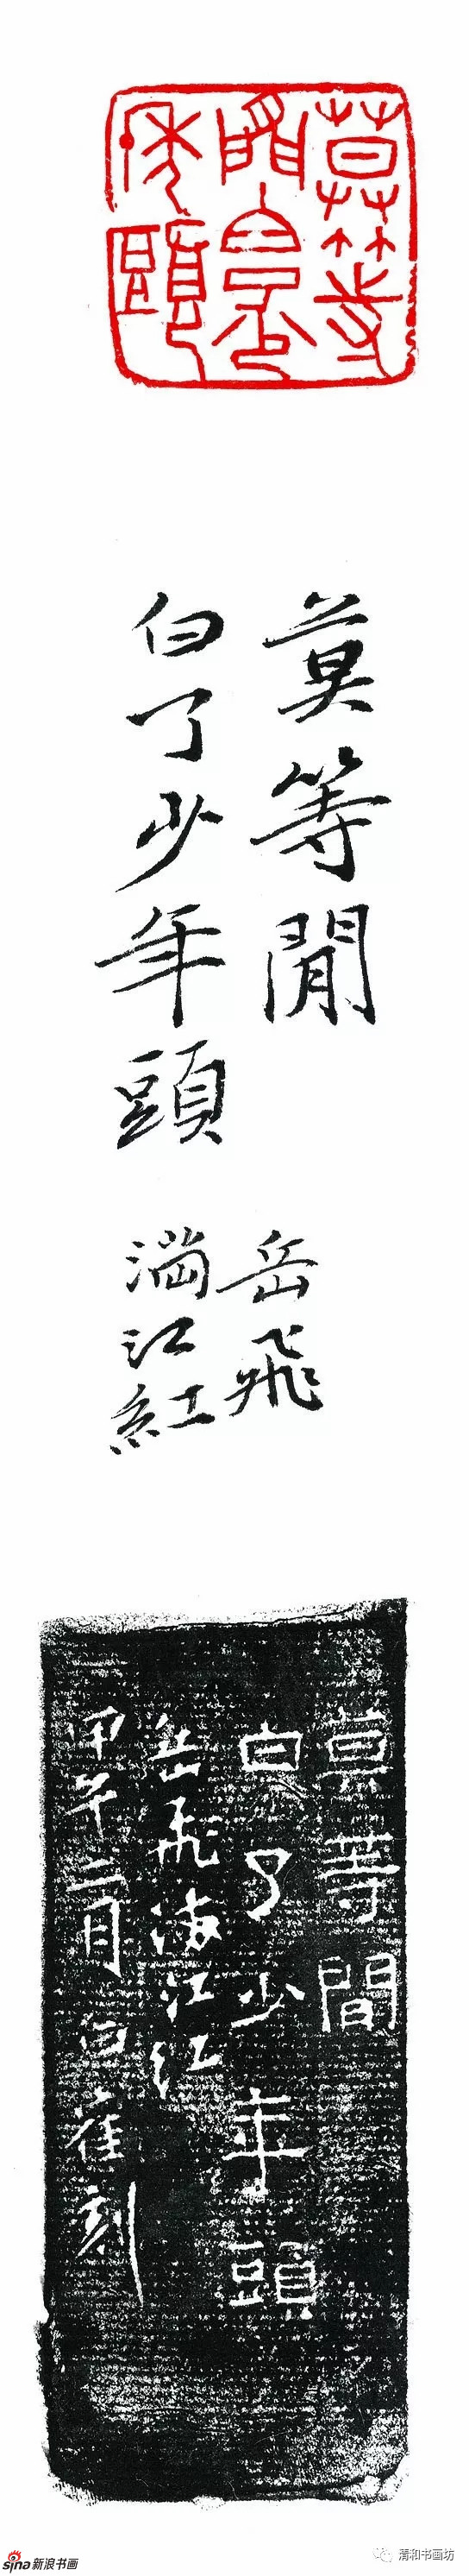 莫等閒
白了少年頭
莫等閒
白了少年頭
岳飛
滿江紅
莫等閒
白了少年頭
岳飛滿江紅
甲午二月白雀刻
sina新浪书画
清和书画坊